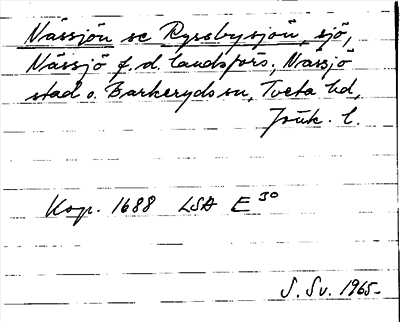 Nässjön se Ryssbysjön, sjö,
Nässjö f.d. landsförs., Nässjö
stad o. Barkeryds sn, Tveta hd,
Jönk. l.
Kop. 1688 LSA E 30
S. Sv. 1965-